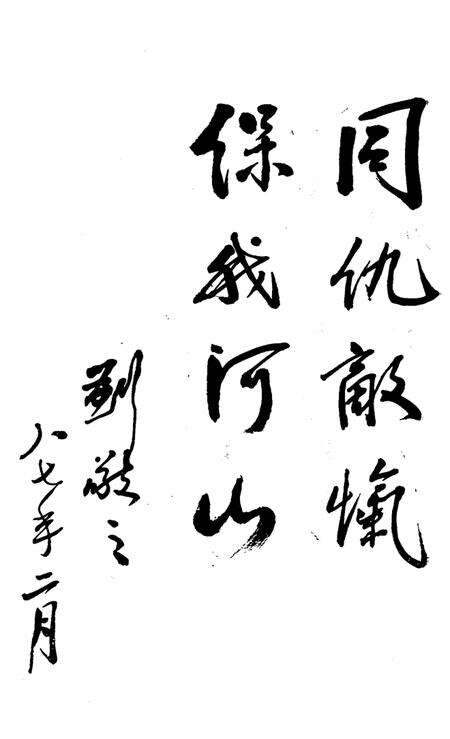 同仇敌忾
保我河山
刘敬之
八七年二月